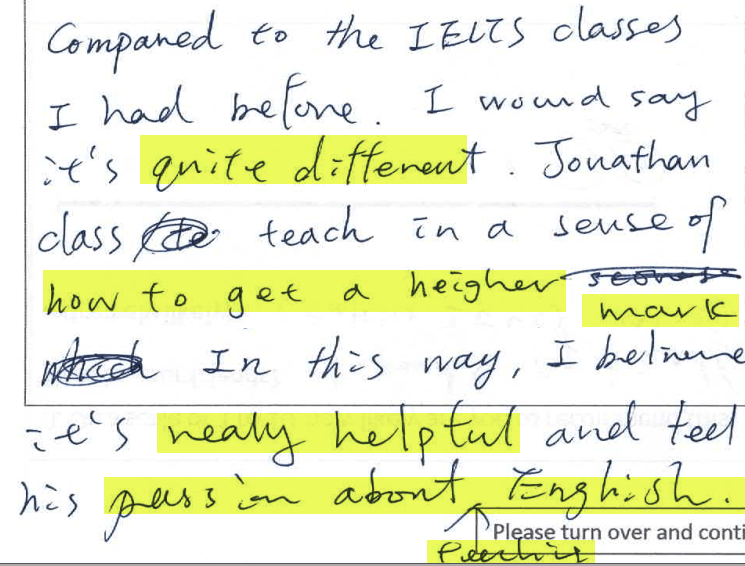 Compared to the IELTS classes
I had before. I would say
it's quite different. Jonathan
class teach in a sense of
how to get a heigher
mark
In this way, I believe
it's realy helpful and feel
his passion about English.
Please turn over and conti